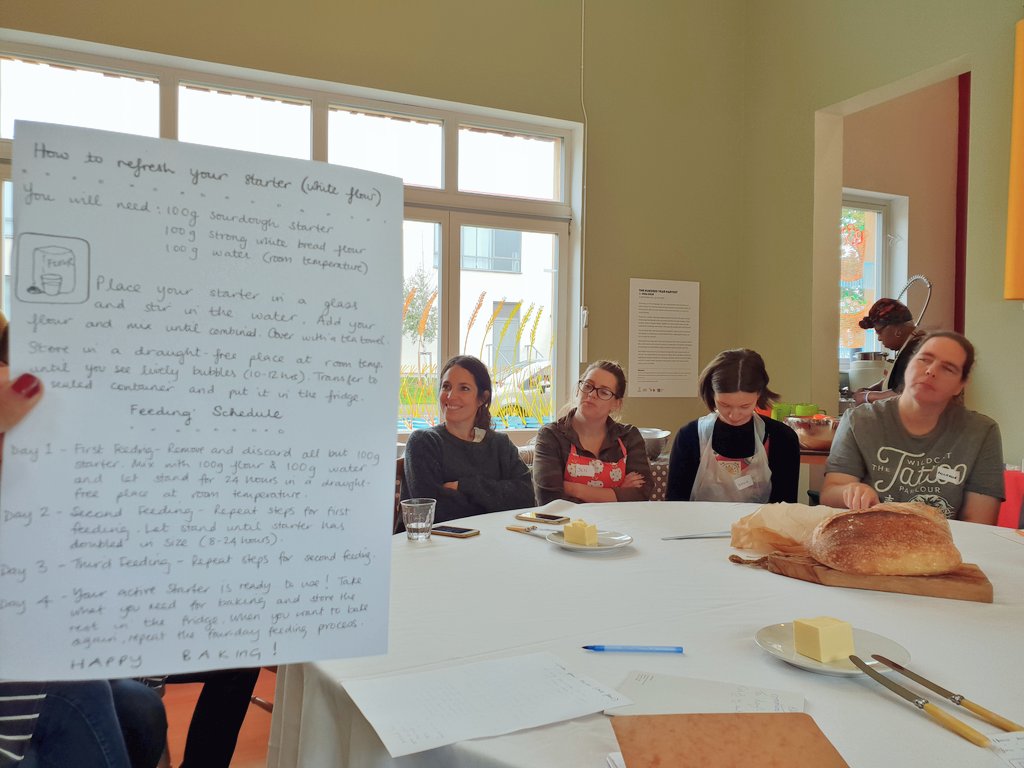 How to refresh your starter (white flour)
You will need: 100g sourdough starter
100g strong white bread flour
100g water (room temperature)
Place your starter in a glass
and stir in the water. Add your
flour and mix until combined. Cover with a tea towel.
Store in a draught-free place at room temp.
until you see lively bubbles (10-12 hrs). Transfer to
a sealed container and put it in the fridge.
Feeding Schedule
Day 1 - First Feeding - Remove and discard all but 100g
starter. Mix with 100g flour & 100g water
and let stand for 24 hours in a draught-
free place at room temperature.
Day 2 - Second Feeding - Repeat steps for first
feeding. Let stand until starter has
doubled in size (8-24 hours).
Day 3 - Third Feeding - Repeat steps for second feeding.
Day 4 - Your active starter is ready to use! Take
what you need for baking and store the
rest in the fridge. When you want to bake
again, repeat the four-day feeding process.
HAPPY BAKING!
WILDCAT
THE
Tattoo
PARLOUR